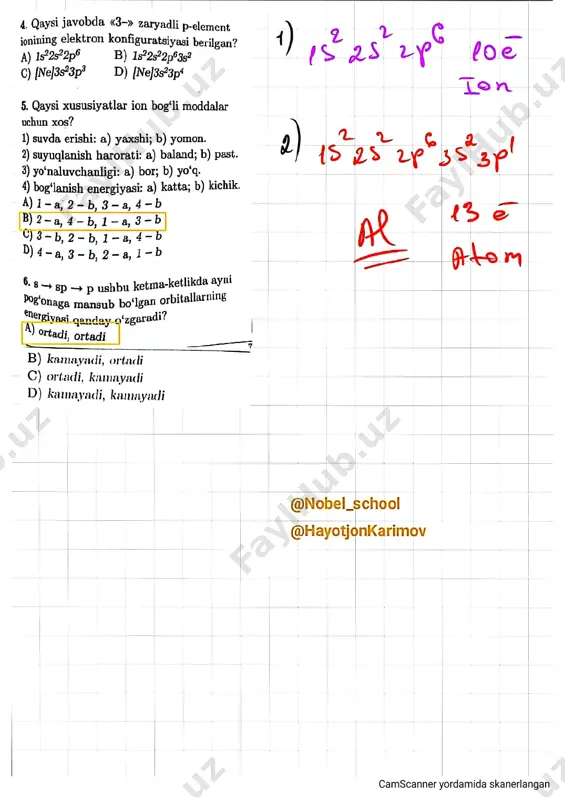 4. Qaysi javobda «3–» zaryadli p-element
ionining elektron konfiguratsiyasi berilgan?
A) 1s²2s²2p⁶ B) 1s²2s²2p⁶3s²
C) [Ne]3s²3p³ D) [Ne]3s²3p⁴
5. Qaysi xususiyatlar ion bog‘li moddalar
uchun xos?
1) suvda erishi: a) yaxshi; b) yomon.
2) suyuqlanish harorati: a) baland; b) past.
3) yo‘naluvchanligi: a) bor; b) yo‘q.
4) bog‘lanish energiyasi: a) katta; b) kichik.
A) 1 – a, 2 – b, 3 – a, 4 – b
B) 2 – a, 4 – b, 1 – a, 3 – b
C) 3 – b, 2 – b, 1 – a, 4 – b
D) 4 – a, 3 – b, 2 – a, 1 – b
6. s → sp → p ushbu ketma-ketlikda ayni
pog‘onaga mansub bo‘lgan orbitallarning
energiyasi qanday o‘zgaradi?
A) ortadi, ortadi
7
B) kamayadi, ortadi
C) ortadi, kamayadi
D) kamayadi, kamayadi
1) 1s² 2s² 2p⁶ 10ē
Ion
2) 1s² 2s² 2p⁶ 3s² 3p¹
Al 13 ē
Atom
@Nobel_school
@HayotjonKarimov
FayllHub.uz
CamScanner yordamida skanerlangan